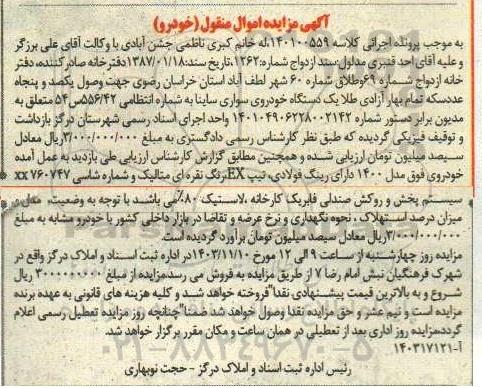 آگهی مزایده اموال منقول (خودرو)
به موجب پرونده اجرائی کلاسه ۱۴۰۱۰۰۵۵۹،له خانم کبری ناظمی جشن آبادی با وکالت آقای علی برزگر
و علیه آقای احد قنبری مدلول سند ازدواج شماره:۱۲۶۲،تاریخ سند:۱۳۸۷/۰۱/۱۸دفترخانه صادرکننده، دفتر
خانه ازدواج شماره ۶۹وطلاق شماره ۶۰ شهر لطف آباد استان خراسان رضوی جهت وصول یکصد و پنجاه
عددسکه تمام بهار آزادی طلا یک دستگاه خودروی سواری ساینا به شماره انتظامی ۴۲-۵۵۶س۵۴ متعلق به
مدیون برابر دستور شماره ۱۴۰۱۰۴۹۰۶۲۲۸۰۰۲۱۴۲ واحد اجرای اسناد رسمی شهرستان درگز بازداشت
و توقیف فیزیکی گردیده که طبق نظر کارشناس رسمی دادگستری به مبلغ ۳/۰۰۰/۰۰۰/۰۰۰ریال معادل
سیصد میلیون تومان ارزیابی شده و همچنین مطابق گزارش کارشناس ارزیابی طی بازدید به عمل آمده
خودروی فوق مدل ۱۴۰۰ دارای رینگ فولادی، تیپ EX،رنگ نقره ای متالیک و شماره شاسی ۷۶۰۷۴۷ xx
سیستم پخش و روکش صندلی فابریک کارخانه ،لاستیک ۸۰٪می باشد با توجه به وضعیت، مدل و
میزان درصد استهلاک ، نحوه نگهداری و نرخ عرضه و تقاضا در بازار داخلی کشور با خودرو مشابه به مبلغ
۳/۰۰۰/۰۰۰/۰۰۰ریال معادل سیصد میلیون تومان برآورد گردیده است.
مزایده روز چهارشنبه از ساعت ۹ الی ۱۲ مورخ ۱۴۰۳/۱۱/۱۰در اداره ثبت اسناد و املاک درگز واقع در
شهرک فرهنگیان نبش امام رضا ۷ از طریق مزایده به فروش می رسد.مزایده از مبلغ ۳۰۰۰۰۰۰۰۰۰ ریال
شروع و به بالاترین قیمت پیشنهادی نقدا"فروخته خواهد شد و کلیه هزینه های قانونی به عهده برنده
مزایده است و نیم عشر و حق مزایده نقدا وصول خواهد شد ضمنا"چنانچه روز مزایده تعطیل رسمی اعلام
گردد،مزایده روز اداری بعد از تعطیلی در همان ساعت و مکان مقرر برگزار خواهد شد.
آ-۱۴۰۳۱۷۱۲۱
رئیس اداره ثبت اسناد و املاک درگز - حجت نوبهاری
۰۲۱-۸۸۳۴۹۶۷۰-۵